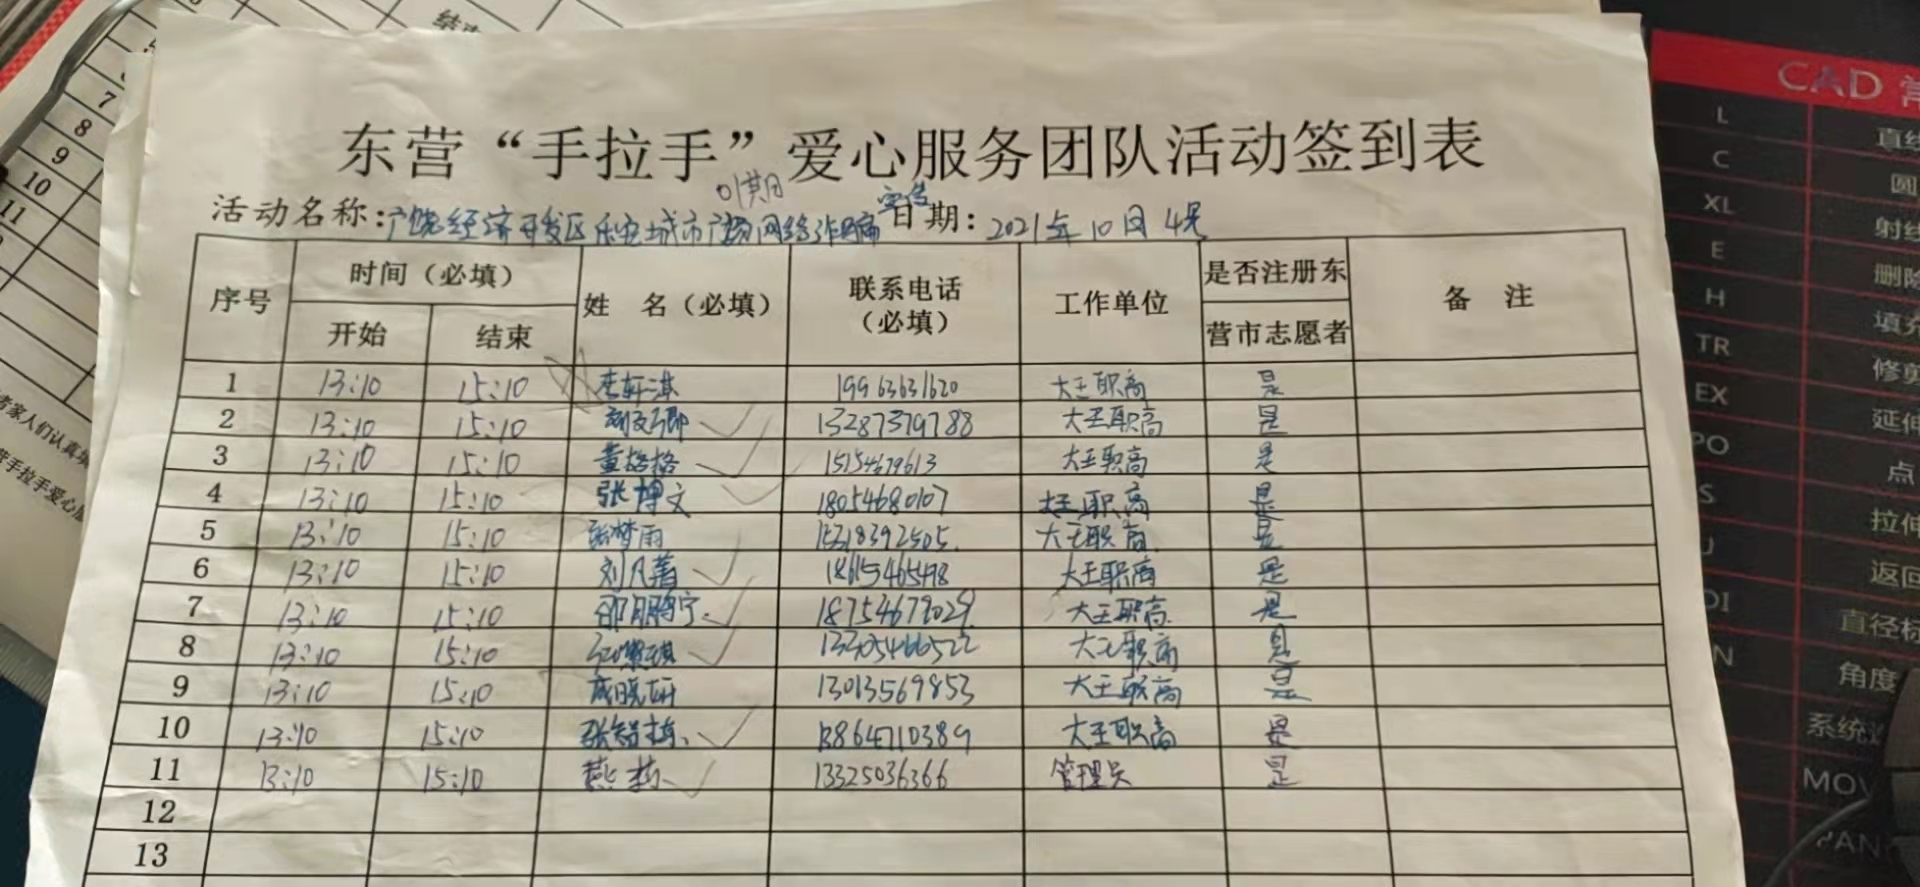 东营“手拉手”爱心服务团队活动签到表
01期
活动名称：广饶经济开发区乐安城市广场网络诈骗宣传 日期：2021年10月4号
序号 时间（必填） 姓 名（必填） 联系电话（必填） 工作单位 是否注册东营市志愿者 备 注
开始 结束
1 13:10 15:10 19963631620 大王职高 是
2 13:10 15:10 13287379788 大王职高 是
3 13:10 15:10 董格格 15154679613 大王职高 是
4 13:10 15:10 张博文 18054680107 大王职高 是
5 13:10 15:10 张梦雨 15318392505 大王职高 是
6 13:10 15:10 刘凡菖 18615465498 大王职高 是
7 13:10 15:10 邵鹏宁 18754679029 大王职高 是
8 13:10 15:10 13305466522 大王职高 是
9 13:10 15:10 成晓妍 13013569853 大王职高 是
10 13:10 15:10 张智栋 13864710389 大王职高 是
11 13:10 15:10 燕 13325036366 管理员 是
12
13
7
8
9
10
11
CAD 常
L 直线
C 圆
XL 射线
E 删除
H 填充
TR 修剪
EX 延伸
PO 点
S 拉伸
返回
DI 直径标
角度
系统
MOV
PAN
者家人们认真填
手拉手爱心服